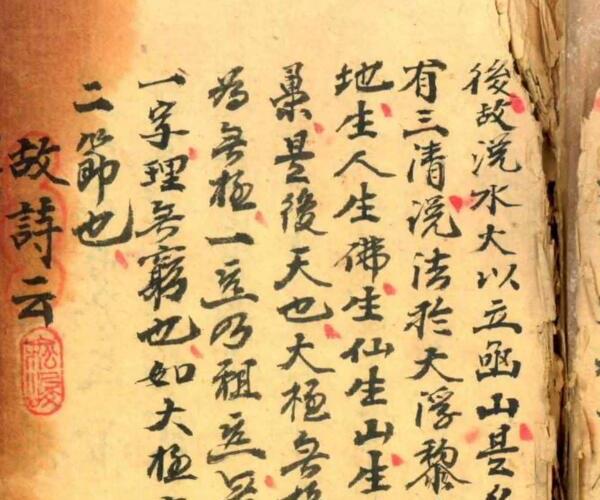 後故混水大以立函山是
有三清说法於大浮黎
地生人生佛生仙生山生
稟是後天也大極無極
為無極一竅乃祖竅
一字理無窮也如大極
二節也
故詩云